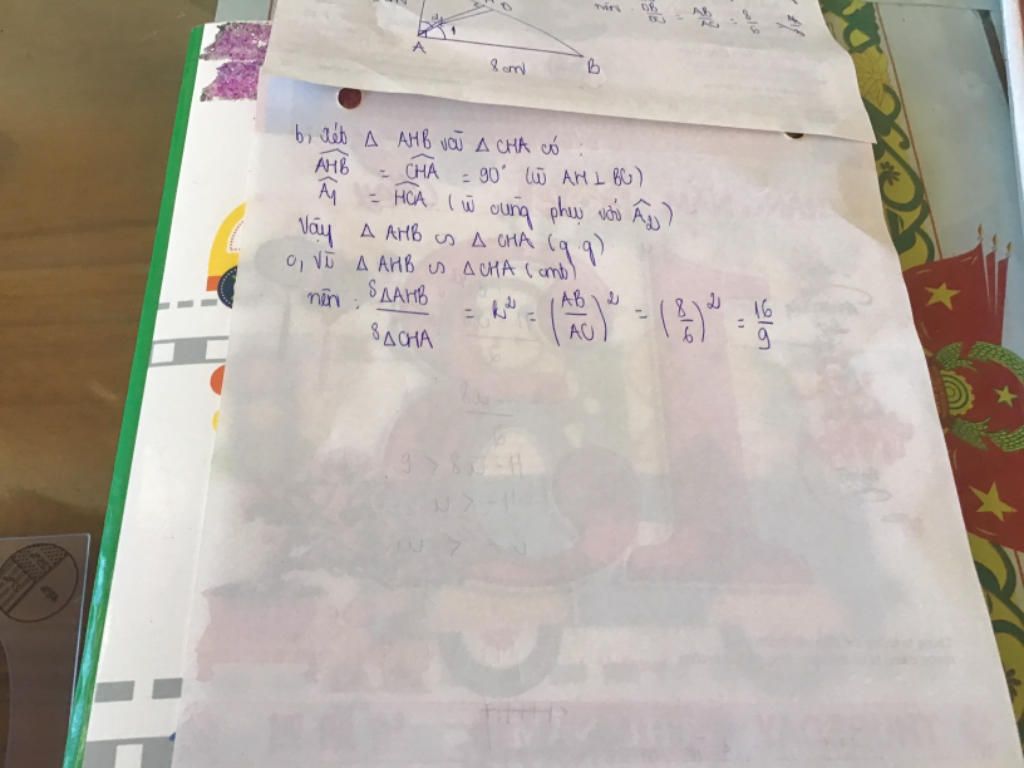 nên : DB/DC = AB/AC = 8/6
A
1
D
8cm
B
b, Xét △ AHB và △ CHA có :
AHB = CHA = 90° (vì AH ⊥ BC)
Â1 = HCA (vì cùng phụ với Â2)
Vậy △ AHB ∽ △ CHA (g.g)
c, Vì △ AHB ∽ △CHA (cmb)
nên : S△AHB / S△CHA = k² = (AB/AC)² = (8/6)² = 16/9